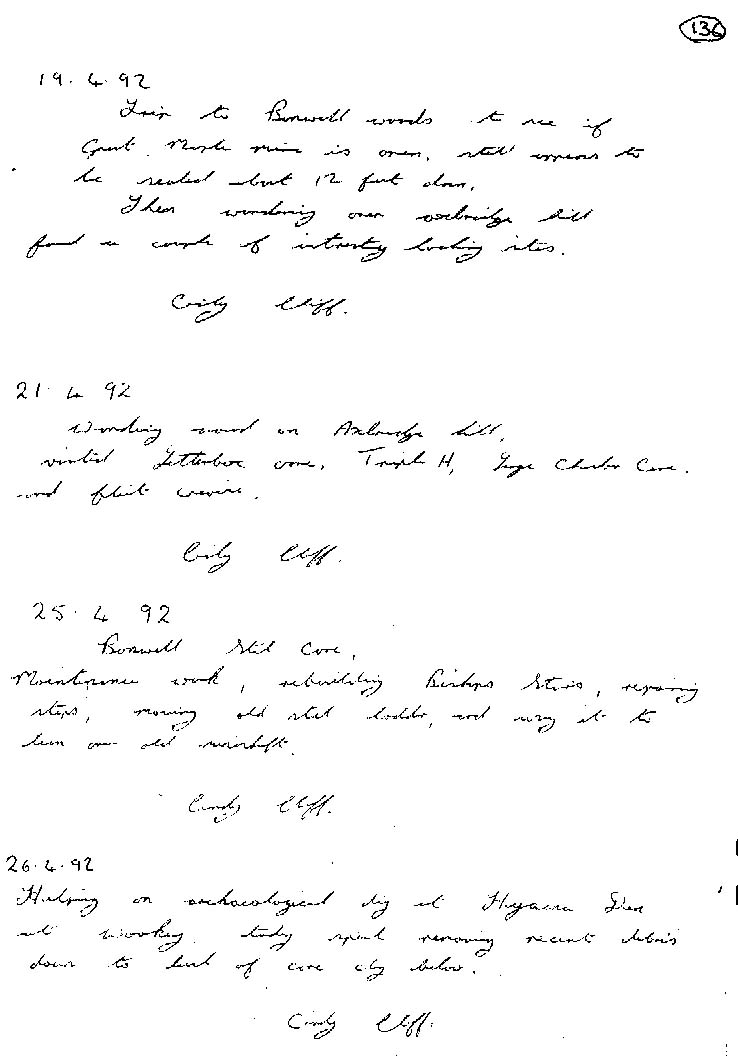 136
19. 4. 92
Trip to Banwell woods to see if
Great Maple mine is open, still appears to
be sealed about 12 feet down.
Then wandering over axbridge hill
found a couple of intresting looking sites.
Cindy Cliff.
21. 4 92
Wandering around on Axbridge hill,
visited Letterbox cave, Triple H, Large Chamber Cave.
and flint crevice.
Cindy Cliff.
25. 4 92
Banwell Stal Cave,
Maintenance work, rebuilding Bishops Stairs, repairing
steps, moving old steel ladder, and using it to
lean over old mineshaft.
Cindy Cliff.
26. 4. 92
Helping on archaeological dig at Hyaena Den
at wookey, today spent removing recent debris
down to level of cave clay below.
Cindy Cliff.